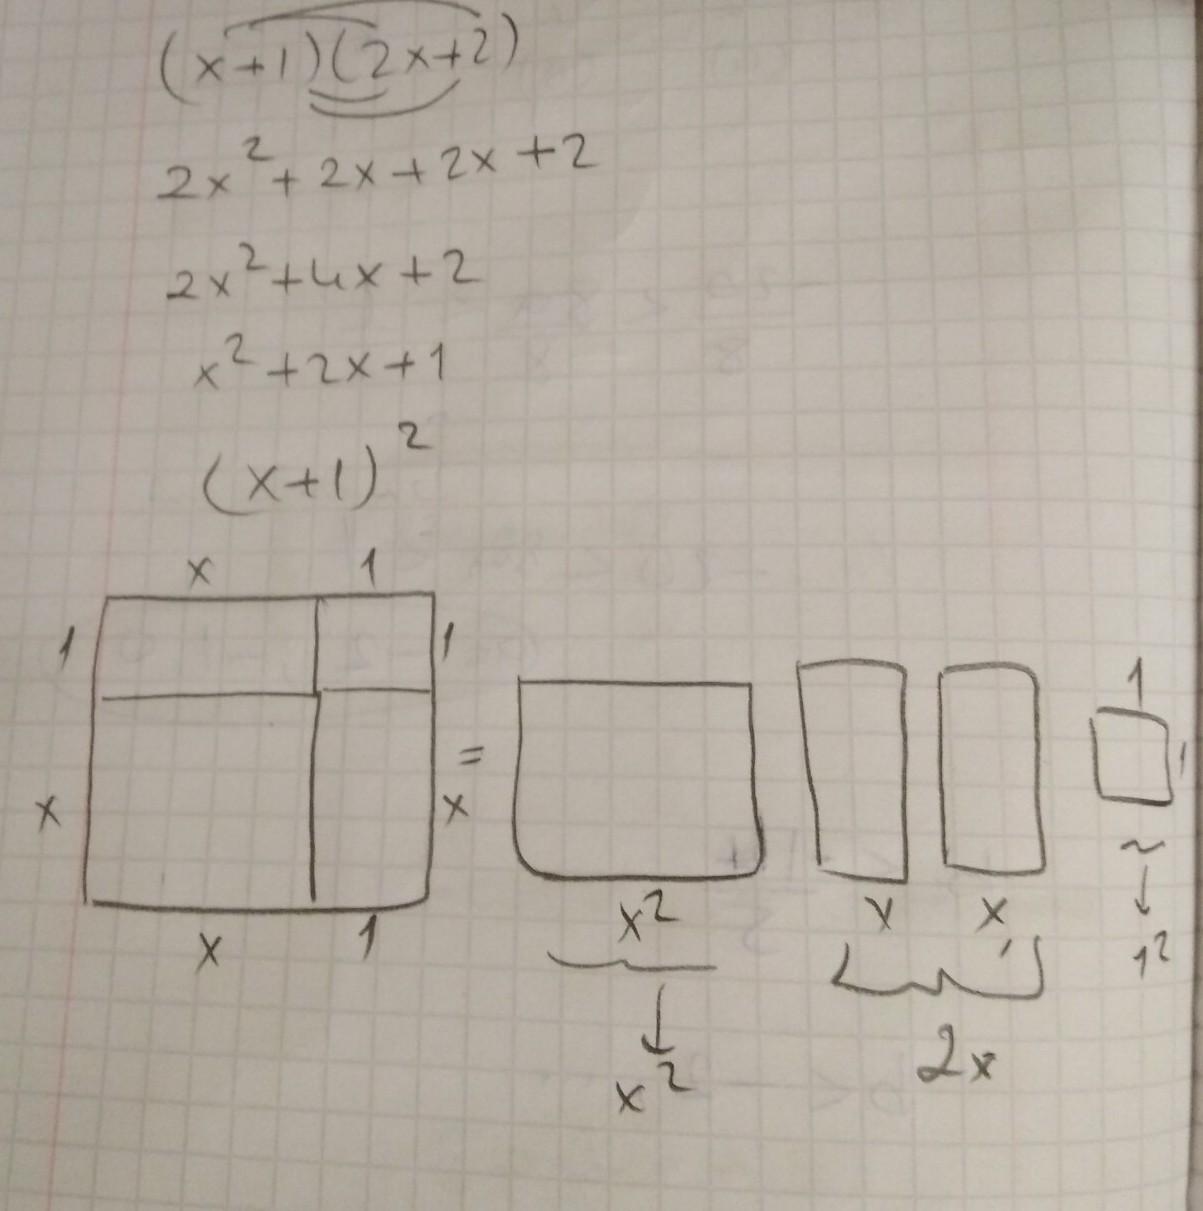 (x+1)(2x+2)
2x²+2x+2x+2
2x²+4x+2
x²+2x+1
(x+1)²
x 1
1 1
x = x
x 1
x² x x
x² 2x
1
1
~
1²